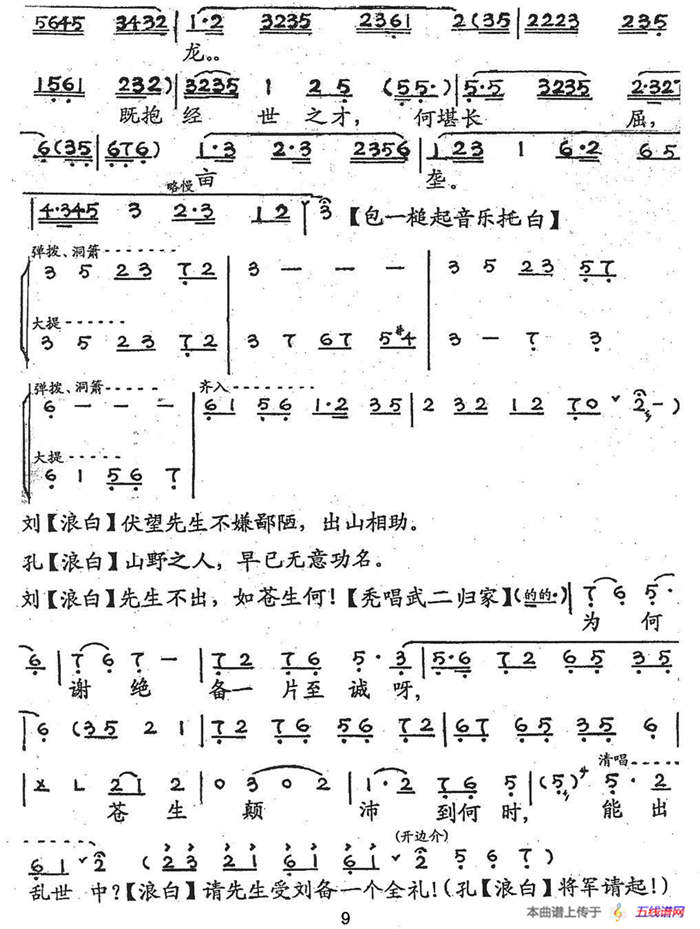 5645 3432 | 1·2 3235 2361 2(035 | 2223 235
龙。。
1561 232) | 3235 1 2 5 (55·) | 5·5 3235 2·327
既抱 经 世 之 才, 何堪 长 屈,
6(35 | 676) 1·3 2·3 2356 | 123 1 6·2 65
亩 略慢 垄。
4·345 3 2·3 12 3 【包一槌起音乐托白】
弹拨、洞箫
3 5 23 72 | 3 — — — | 3 5 23 57
大提
3 5 23 72 | 3 7 67 5#4 | 3 — 7 3
弹拨、洞箫 齐入
6 — — — | 61 56 1·2 35 | 2 32 12 70 2 —)
大提
6 1 56 7
刘【浪白】伏望先生不嫌鄙陋,出山相助。
孔【浪白】山野之人,早已无意功名。
刘【浪白】先生不出,如苍生何!【秃唱武二归家】(的的·) | 7 6 5·
为 何
6 | 7 6 7 — | 72 76 5· 3 | 5·6 72 65 35
谢 绝 备一 片至 诚 呀,
6 (35 2 1 | 72 76 56 72 | 67 65 35 6 |
清唱
X L 21 2 | 0 3 0 2 | 1·2 76 5 | (5) 5· 2
苍 生 颠 沛 到何 时, 能 出
(开边介)
61 2 (23 21 61 61 2 5 6 7)
乱世 中?【浪白】请先生受刘备一个全礼!(孔【浪白】将军请起!)
9
本曲谱上传于 五线谱网